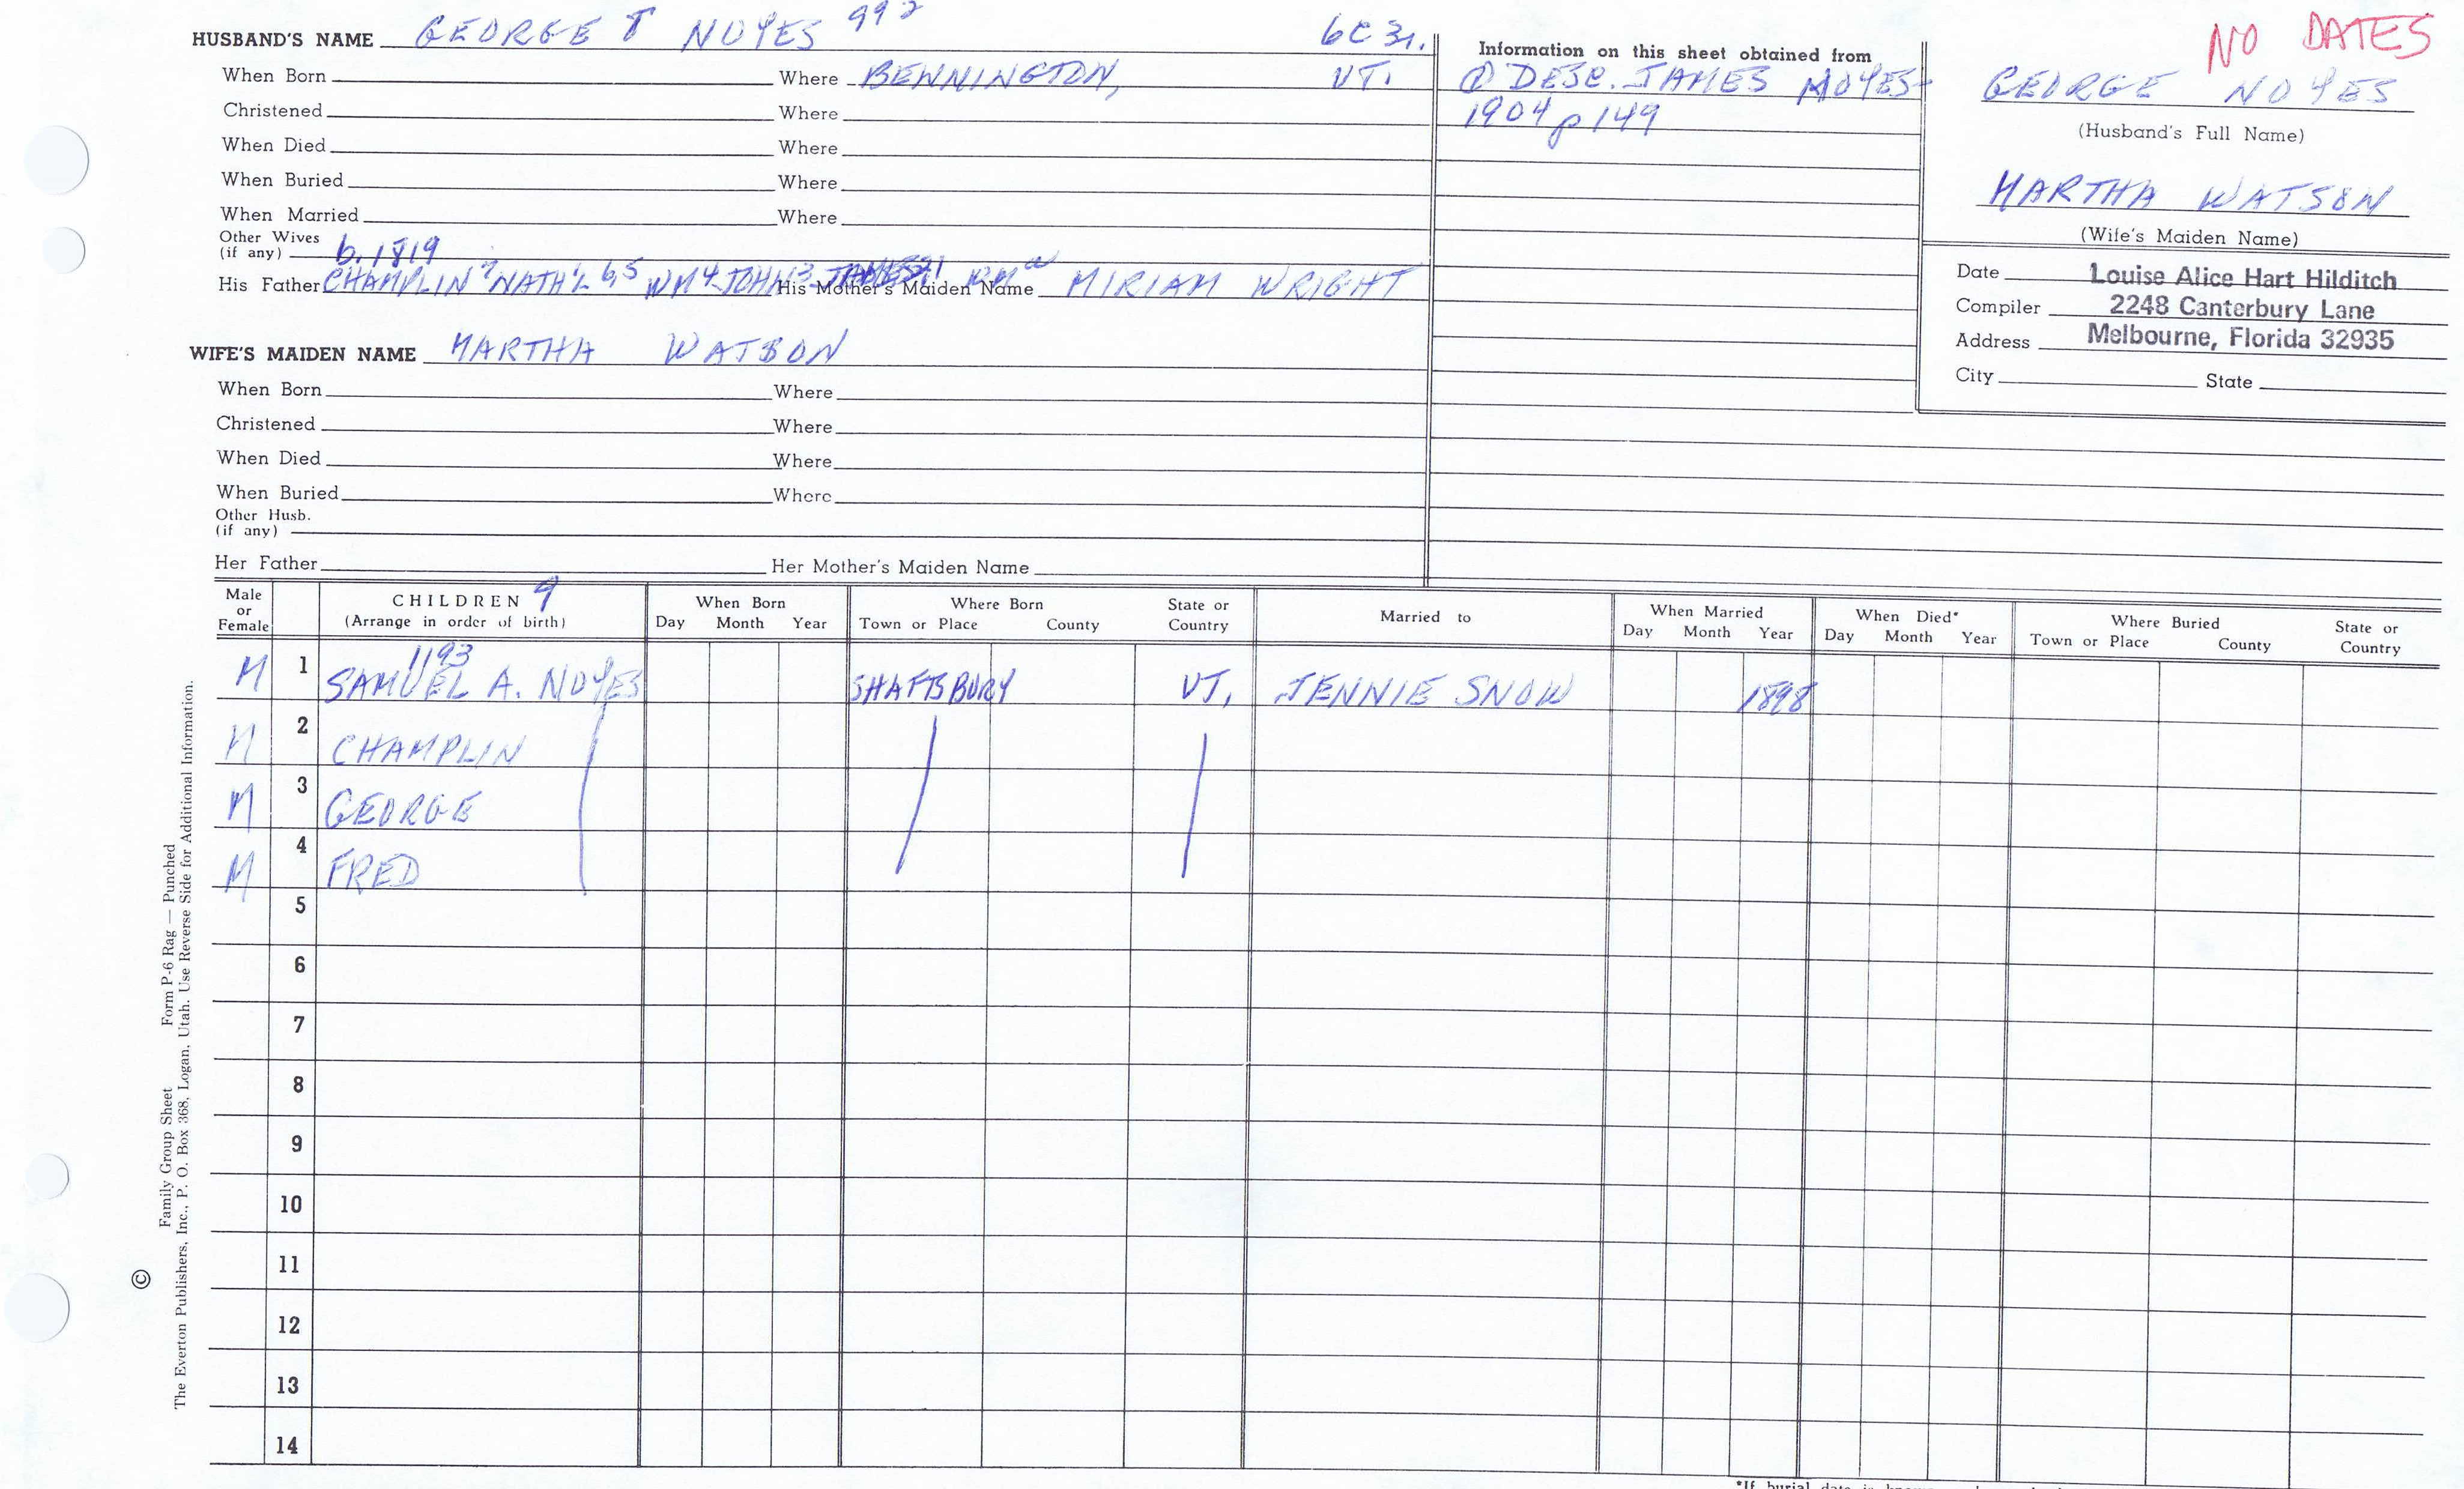 HUSBAND'S NAME GEORGE 8 NOYES 992 6C3r.
When Born Where BENNINGTON, VT.
Christened Where
When Died Where
When Buried Where
When Married Where
Other Wives
(if any) b. 1819
His Father CHAMPLIN 7 NATH'L 6,5 WM 4 JOHN 3 His Mother's Maiden Name MIRIAM WRIGHT
WIFE'S MAIDEN NAME MARTHA WATSON
When Born Where
Christened Where
When Died Where
When Buried Where
Other Husb.
(if any)
Her Father Her Mother's Maiden Name
Information on this sheet obtained from
① DESC. JAMES NOYES-
1904 p 149
NO DATES
GEORGE NOYES
(Husband's Full Name)
MARTHA WATSON
(Wife's Maiden Name)
Date Louise Alice Hart Hilditch
Compiler 2248 Canterbury Lane
Address Melbourne, Florida 32935
City State
Male or Female CHILDREN 9 (Arrange in order of birth) When Born Day Month Year Where Born Town or Place County State or Country Married to When Married Day Month Year When Died* Day Month Year Where Buried Town or Place County State or Country
1193
M 1 SAMUEL A. NOYES SHAFTSBURY VT. JENNIE SNOW 1898
M 2 CHAMPLIN
M 3 GEORGE
M 4 FRED
5
6
7
8
9
10
11
12
13
14
© Family Group Sheet Form P-6 Rag — Punched
The Everton Publishers, Inc., P. O. Box 368, Logan, Utah. Use Reverse Side for Additional Information.